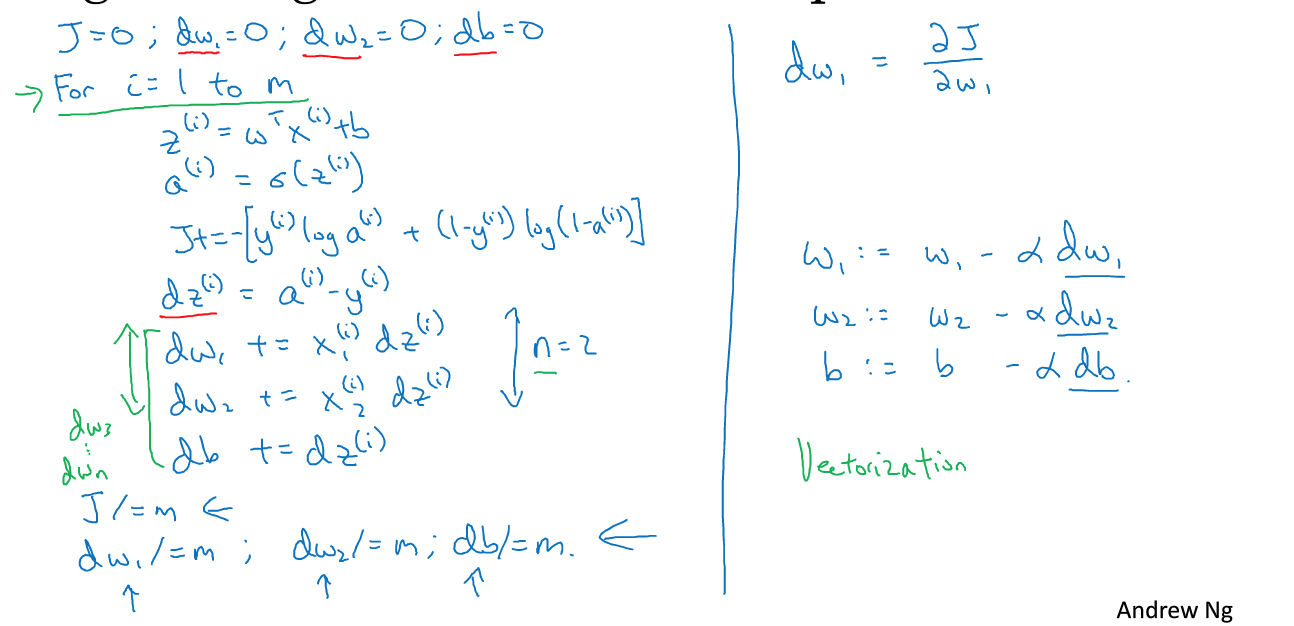 J=0 ; dw₁=0 ; dw₂=0 ; db=0
→ For i=1 to m
z⁽ⁱ⁾ = wᵀx⁽ⁱ⁾+b
a⁽ⁱ⁾ = σ(z⁽ⁱ⁾)
J+=-[y⁽ⁱ⁾ log a⁽ⁱ⁾ + (1-y⁽ⁱ⁾) log(1-a⁽ⁱ⁾)]
dz⁽ⁱ⁾ = a⁽ⁱ⁾-y⁽ⁱ⁾
dw₁ += x₁⁽ⁱ⁾ dz⁽ⁱ⁾
dw₂ += x₂⁽ⁱ⁾ dz⁽ⁱ⁾
n=2
db += dz⁽ⁱ⁾
dw₃
⋮
dwₙ
J/=m ←
dw₁/=m ; dw₂/=m ; db/=m. ←
↑ ↑ ↑
dw₁ = ∂J/∂w₁
w₁ := w₁ - α dw₁
w₂ := w₂ - α dw₂
b := b - α db.
Vectorization
Andrew Ng